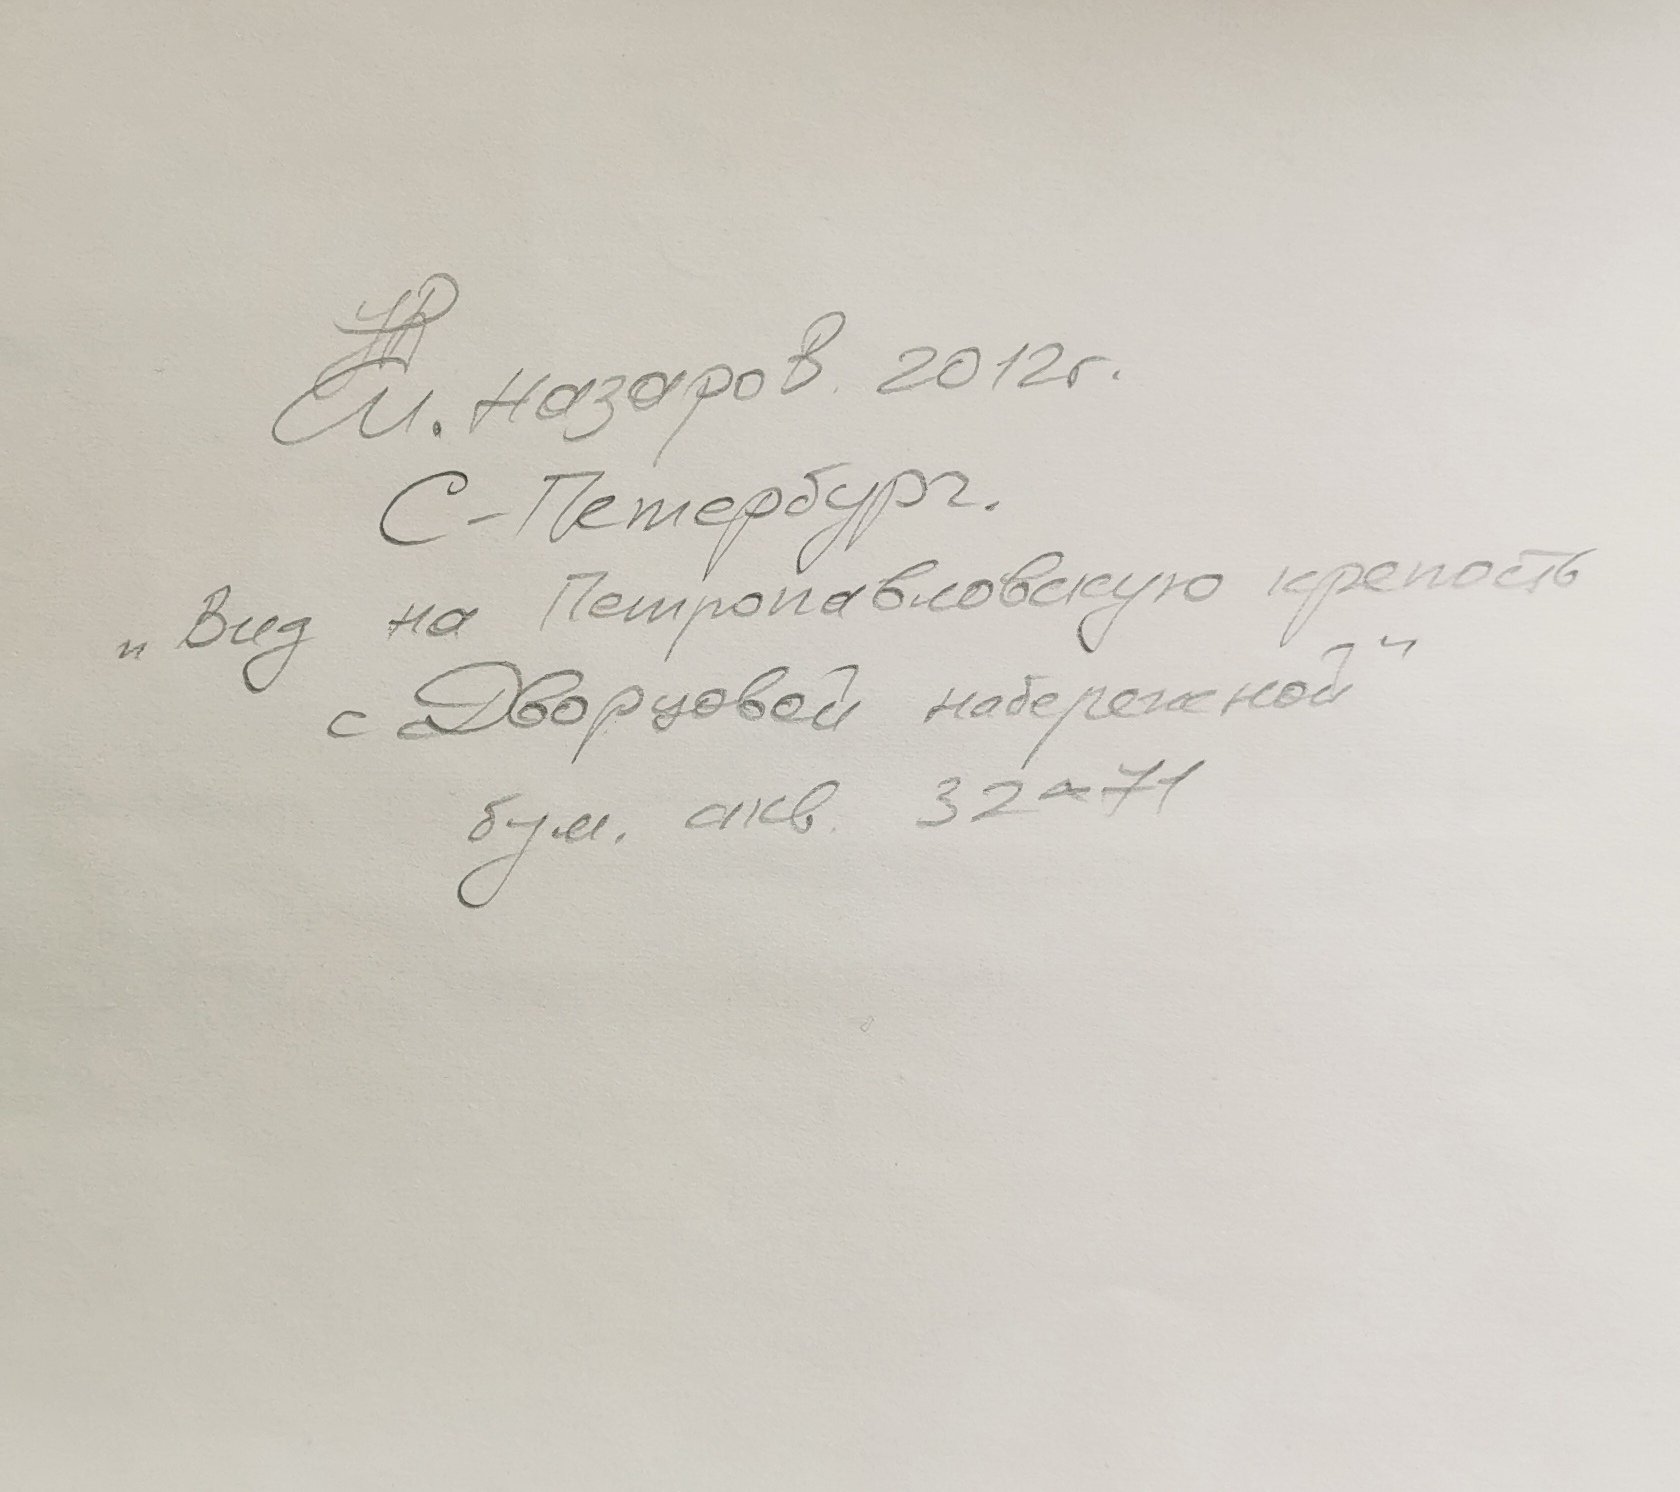 М. Назаров. 2012г.
С-Петербург.
„Вид на Петропавловскую крепость
с Дворцовой набережной"
бум. акв. 32 71